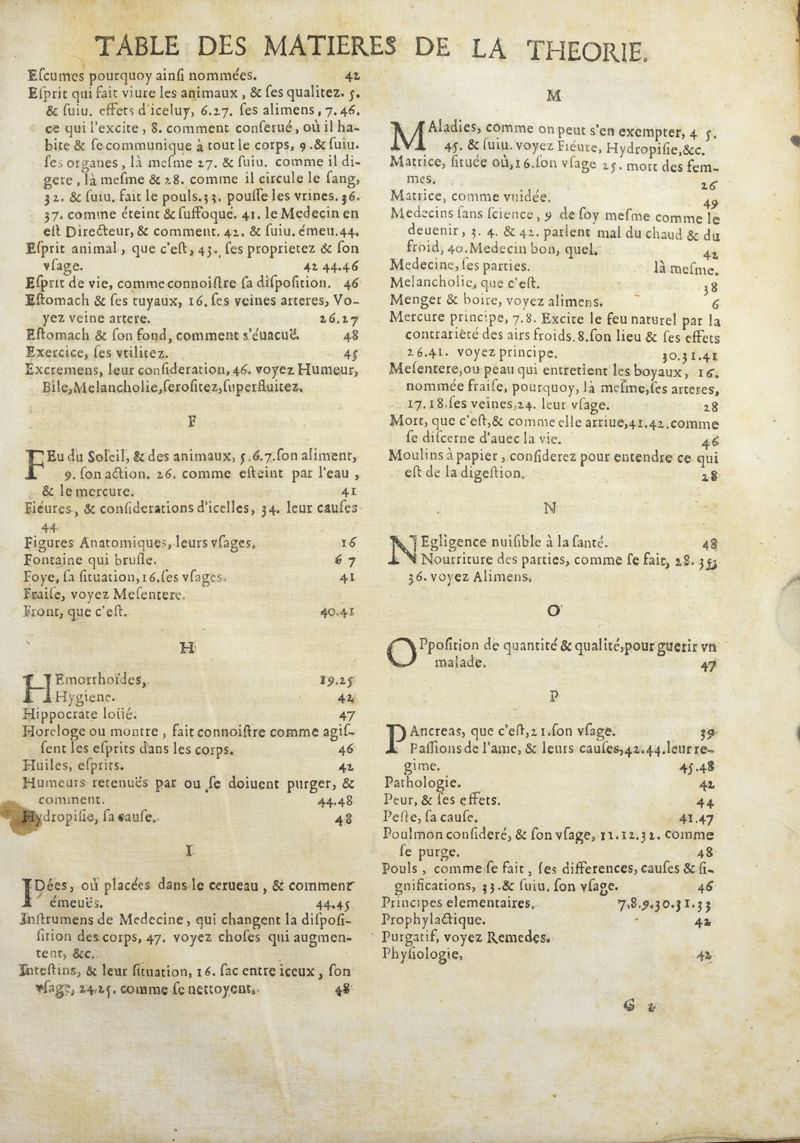 TABLE DES MATIERES DE LA THEORIE.
Eſcumes pourquoy ainſi nommées. 42
Eſprit qui fait viure les animaux, & ſes qualitez. 5.
& ſuiu. effets d'iceluy, 6.27. ſes alimens, 7.46.
ce qui l'excite, 8. comment conſerué, où il ha-
bite & ſe communique à tout le corps, 9.& ſuiu.
ſes organes, là meſme 27. & ſuiu. comme il di-
gere, là meſme & 28. comme il circule le ſang,
32. & ſuiu. fait le pouls.33. pouſſe les vrines.36.
37. comme éteint & ſuffoqué. 41. le Medecin en
eſt Directeur, & comment. 42. & ſuiu. émeu.44.
Eſprit animal, que c'eſt, 43. ſes proprietez & ſon
vſage. 42 44.46
Eſprit de vie, comme connoiſtre ſa diſpoſition. 46
Eſtomach & ſes tuyaux, 16. ſes veines arteres, Vo-
yez veine artere. 26.27
Eſtomach & ſon fond, comment s'éuacuë. 48
Exercice, ſes vtilitez. 45
Excremens, leur conſideration, 46. voyez Humeur,
Bile, Melancholie, ſeroſitez, ſuperfluitez.
F
FEu du Soleil, & des animaux, 5.6.7. ſon aliment,
9. ſon action. 26. comme eſteint par l'eau,
& le mercure. 41
Fiéures, & conſiderations d'icelles, 34. leur cauſes
44
Figures Anatomiques, leurs vſages. 16
Fontaine qui bruſle. 6 7
Foye, ſa ſituation, 16. ſes vſages. 41
Fraiſe, voyez Meſentere.
Front, que c'eſt. 40.41
H
HEmorrhoïdes, 19.25
Hygiene. 42
Hippocrate loüé. 47
Horeloge ou montre, fait connoiſtre comme agiſ-
ſent les eſprits dans les corps. 46
Huiles, eſprits. 42
Humeurs retenuës par ou ſe doiuent purger, &
comment. 44.48
Hydropiſie, ſa cauſe. 48
I
IDées, où placées dans le cerueau, & comment
émeuës. 44.45
Inſtrumens de Medecine, qui changent la diſpoſi-
ſition des corps, 47. voyez choſes qui augmen-
tent, &c.
Inteſtins, & leur ſituation, 16. ſac entre iceux, ſon
vſage, 24.25. comme ſe nettoyent. 48
M
MAladies, comme on peut s'en exempter, 4 5.
45. & ſuiu. voyez Fiéure, Hydropiſie, &c.
Matrice, ſituée où, 16. ſon vſage 25. mort des fem-
mes. 26
Matrice, comme vuidée. 49
Medecins ſans ſcience, 9 de ſoy meſme comme le
deuenir, 3. 4. & 42. parlent mal du chaud & du
froid, 40. Medecin bon, quel. 42
Medecine, ſes parties. là meſme.
Melancholie, que c'eſt. 38
Menger & boire, voyez alimens. 6
Mercure principe, 7.8. Excite le feu naturel par la
contrariéte des airs froids. 8. ſon lieu & ſes effets
26.41. voyez principe. 30.31.41
Meſentere, ou peau qui entretient les boyaux, 16.
nommée fraiſe, pourquoy, là meſme, ſes arteres,
17.18. ſes veines, 24. leur vſage. 28
Mort, que c'eſt, & comme elle arriue, 41.42. comme
ſe diſcerne d'auec la vie. 46
Moulins à papier, conſiderez pour entendre ce qui
eſt de la digeſtion. 28
N
NEgligence nuiſible à la ſanté. 48
Nourriture des parties, comme ſe fait, 28. 35
36. voyez Alimens.
O
OPpoſition de quantité & qualité, pour guerir vn
malade. 47
P
PAncreas, que c'eſt, 21. ſon vſage. 39
Paſſions de l'ame, & leurs cauſes, 42.44. leur re-
gime. 45.48
Pathologie. 42
Peur, & ſes effets. 44
Peſte, ſa cauſe. 41.47
Poulmon conſideré, & ſon vſage, 11.12.32. comme
ſe purge. 48
Pouls, comme ſe fait, ſes differences, cauſes & ſi-
gnifications, 33.& ſuiu. ſon vſage. 46
Principes elementaires. 7,8.9.30.31.33
Prophylactique. 42
Purgatif, voyez Remedes.
Phyſiologie, 42
G 2